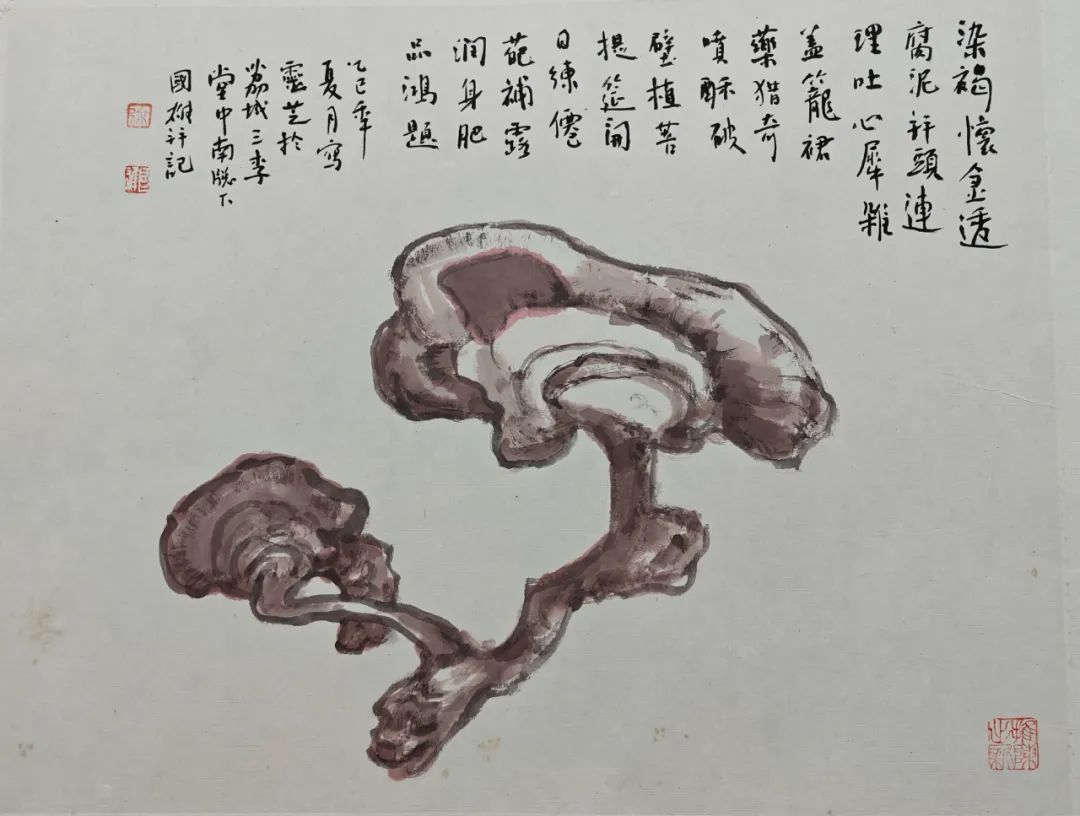 染褐懷金透
腐泥秤頭連
理吐心犀雜
蓋籠裙
藥猎奇
噴酥破
壁植菩
提筵開
日練僊
葩補露
潤身肥
品鴻題
乙巳年
夏月寫
靈芝於
荔城三李
堂中南牕下
國樹并記